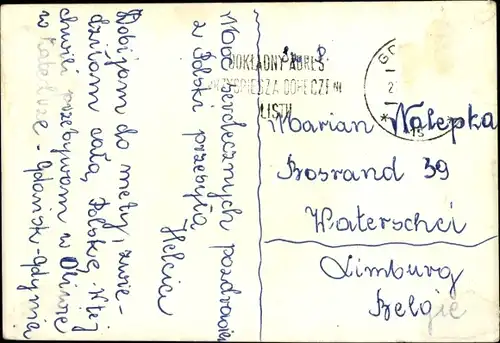 Dobijam do mety, zwie-
dziłam całą Polskę. W tej
chwili przebywam w Oliwie
w Katedrze - Gdańsk - Gdynia
Moc serdecznych pozdrowień
z Polski przesyła
Helcia
DOKŁADNY ADRES
PRZYSPIESZA DORĘCZENIE
LISTU
Marian Nalepka
Bosrand 39
Waterschei
Limburg
Belgie